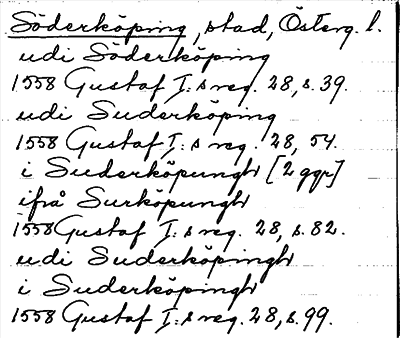 Söderköping, stad, Österg. l.
udi Söderköping
1558 Gustaf I:s reg. 28, s. 39.
udi Suderköping
1558 Gustaf I:s reg. 28, 54.
i Suderköpungh [2 ggr]
ifrå Surköpungh
1558 Gustaf I:s reg. 28, s. 82.
udi Suderköpingh
i Suderköpingh
1558 Gustaf I:s reg. 28, s. 99.